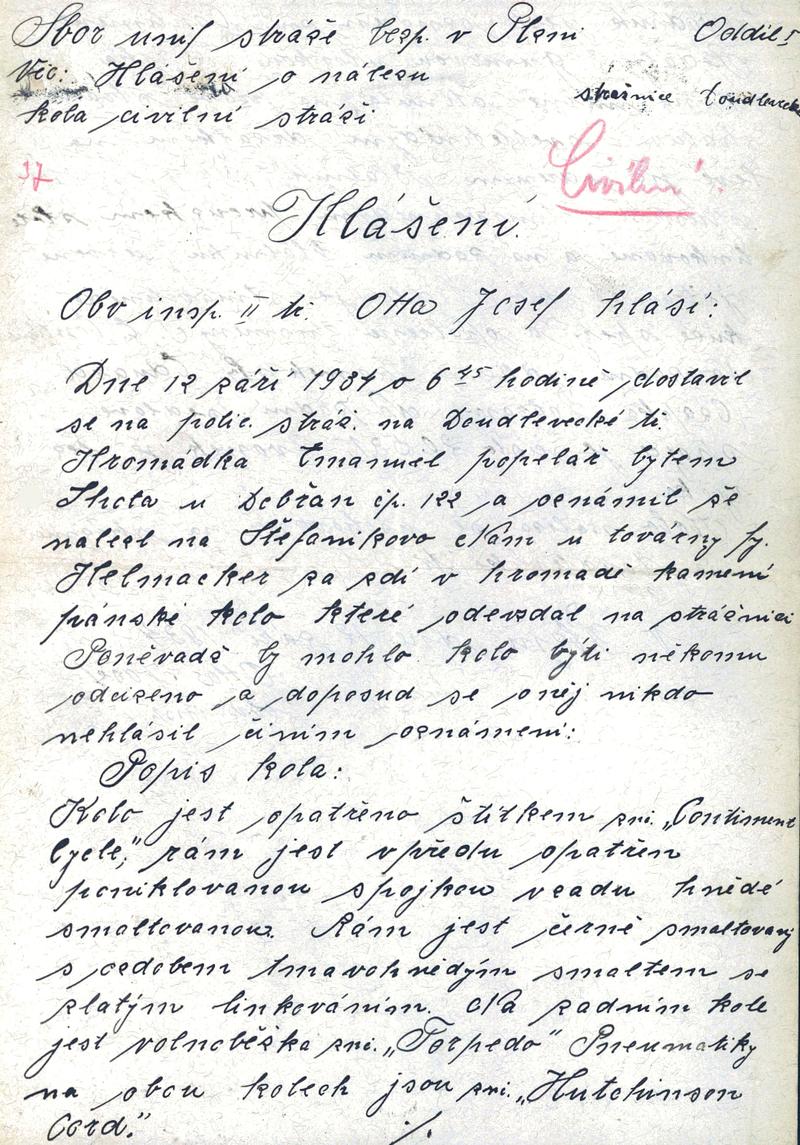 Sbor unif stráže bezp. v Plzni Oddíl I
Věc: Hlášení o nálezu
strážnice Doudlevecká
kola civilní stráži
37
Civilní
Hlášení.
Obv insp. II tř. Otta Josef hlásí:
Dne 12 září 1934 o 6 45 hodině dostavil
se na polic. stráž. na Doudlevecké tř.
Hromádka Emanuel popelář bytem
Lhota u Dobřan čp. 122 a oznámil že
nalezl na Štefanikovo Nám u továrny fy.
Helmacker za zdí v hromadě kamení
pánské kolo které odevzdal na strážnici
Poněvadž by mohlo kolo býti někomu
odcizeno a doposud se oněj nikdo
nehlásil činím oznámení:
Popis kola:
Kolo jest opatřeno štítkem zn. „Continent
Cycle", rám jest vpředu opatřen
poniklovanou spojkou vzadu hnědě
smaltovanou. Rám jest černě smaltovaný
s ozdobem tmavohnědým smaltem se
zlatým linkováním. Na zadním kole
jest volnoběžka zn. „Torpedo" Pneumatiky
na obou kolech jsou zn. „Hutchinson
Cord."
./.